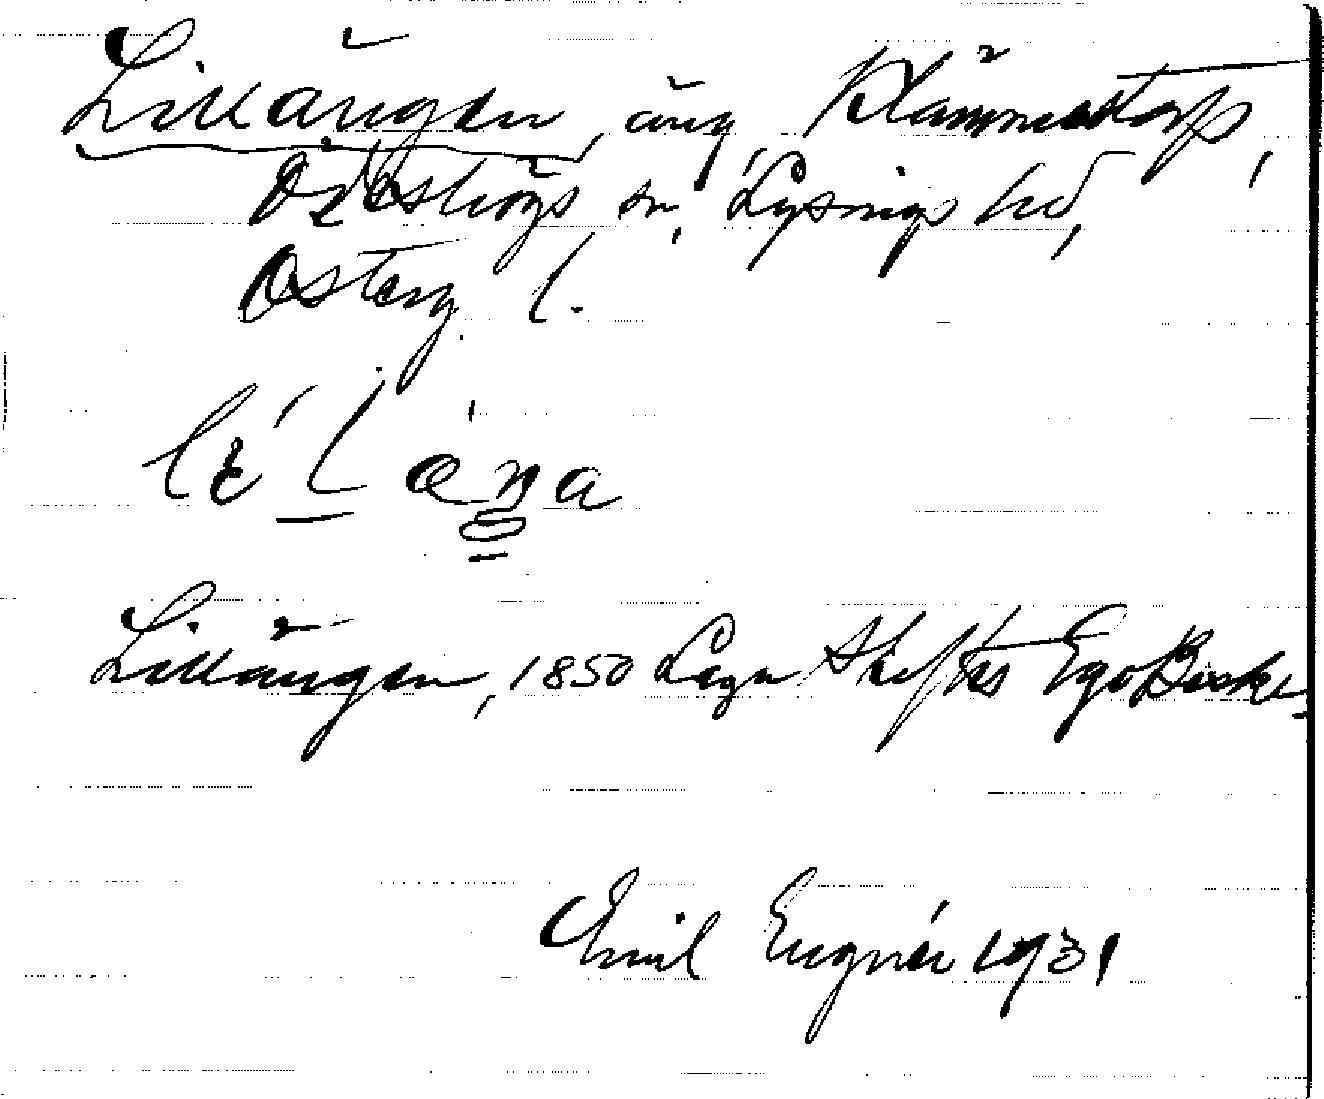 Lillängen, äng, Klämmestorp,
Ödeshögs sn, Lysings hd,
Österg. l.
Lillängen, 1850 Laga Skiftes Ego Beskr.
Emil Engnér 1931